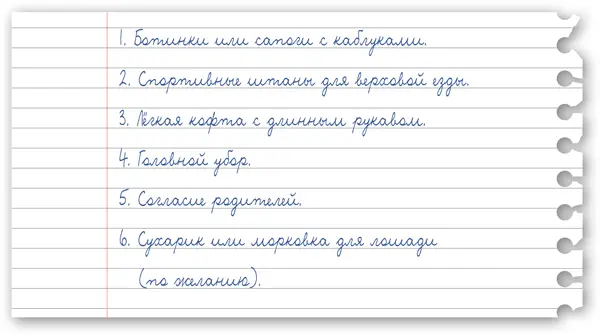 1. Ботинки или сапоги с каблуками.
2. Спортивные штаны для верховой езды.
3. Лёгкая кофта с длинным рукавом.
4. Головной убор.
5. Согласие родителей.
6. Сухарик или морковка для лошади
(по желанию).